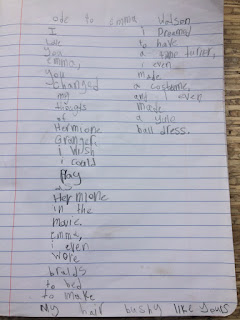 ode to emma Watson
I
love
you
emma,
you
changed
my
thougts
of
Hermione
Granger,
i wish
i could
Play
as
Hermione
in the
movie.
Emma,
i even
wore
braids
to bed
to make
My hair bushy like yours
i Dreamed
to have
a time turner,
i even
made
a costume,
and i even
made
a yule
ball dress.